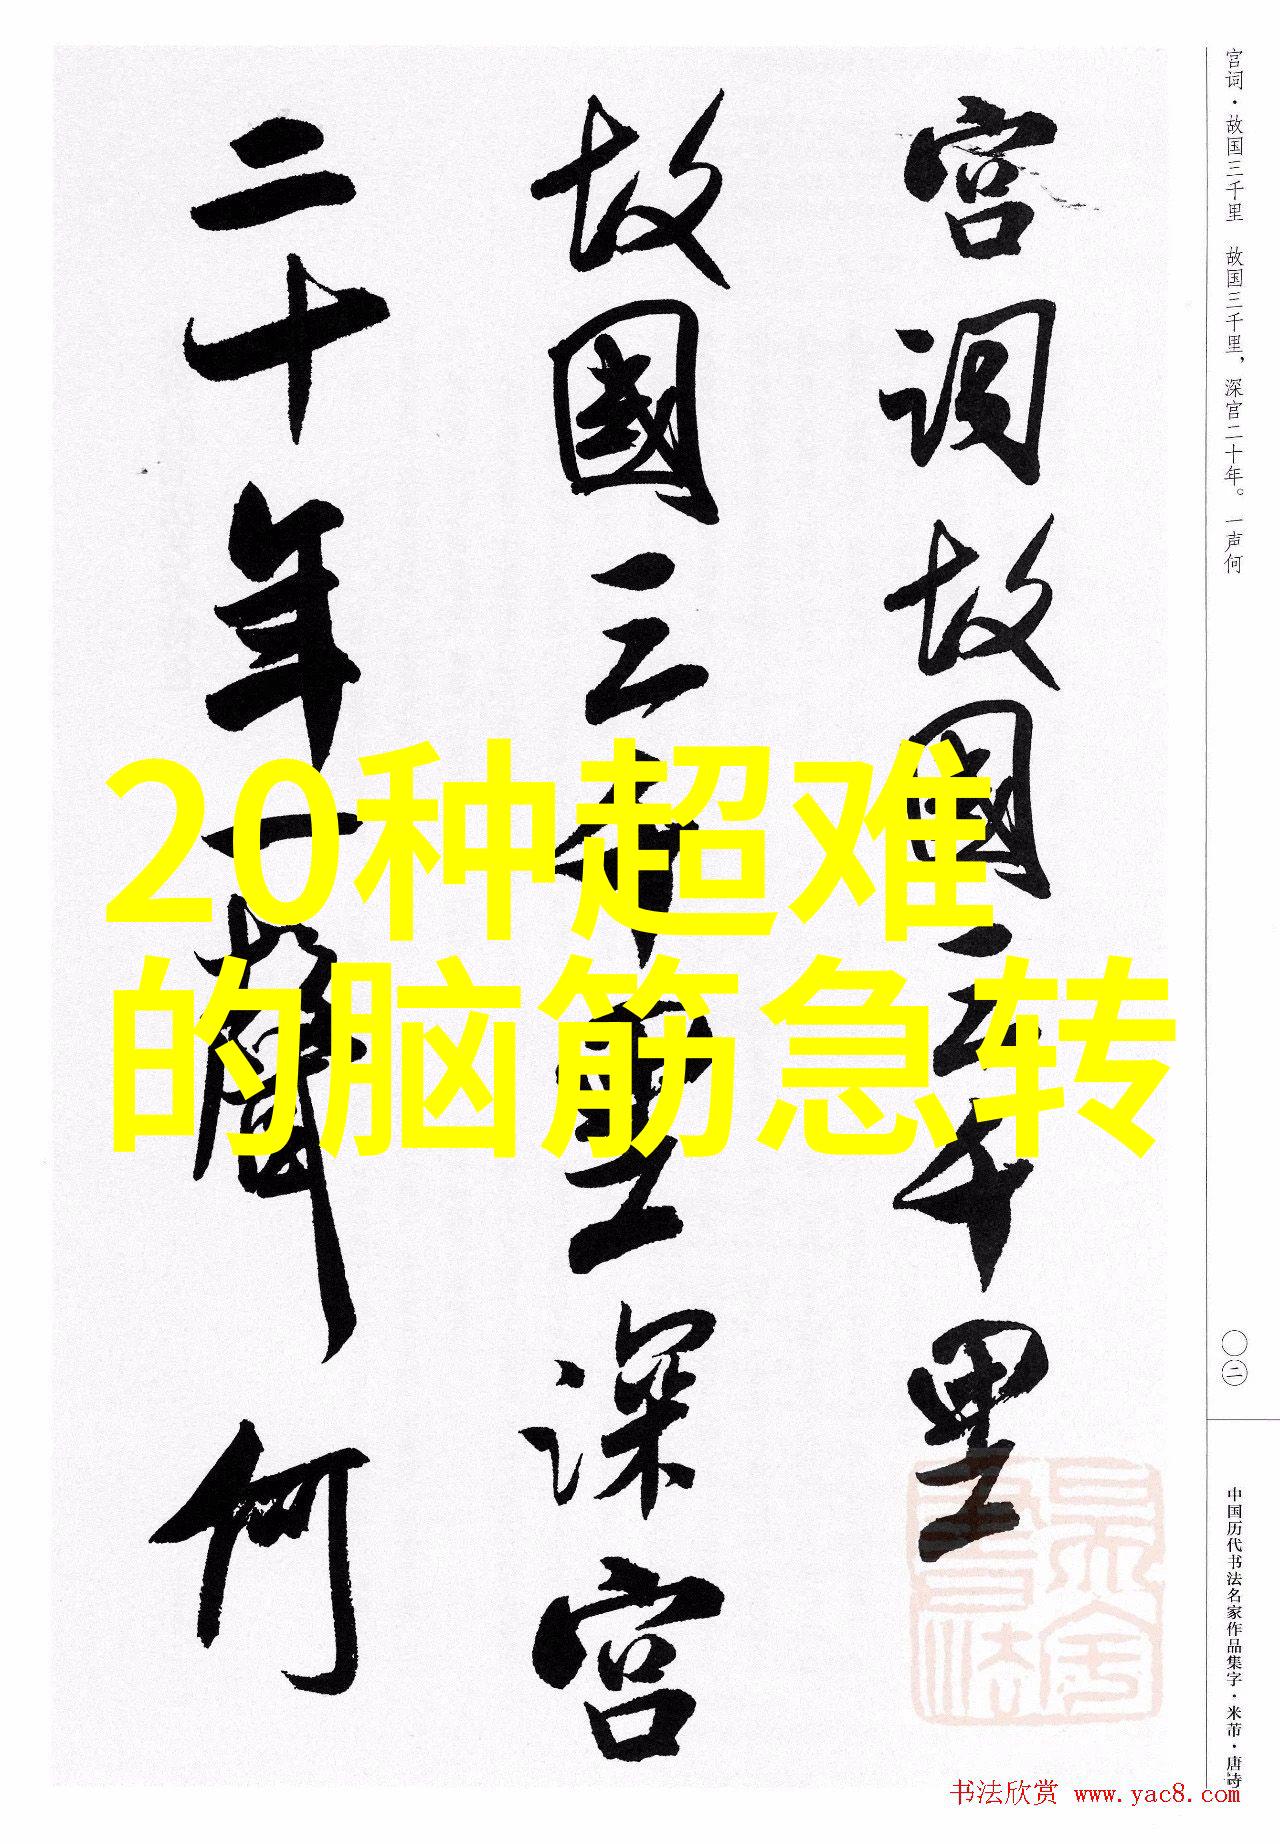 宫词·故国三千里 故国三千里，深宫二十年。一声何
〇二
中国历代书法名家作品集字·米芾·唐诗
宫词故國三千里
故國三千里深宫
二十年一聲何
20种超难
的脑筋急转
书法欣赏 www.yac8.com